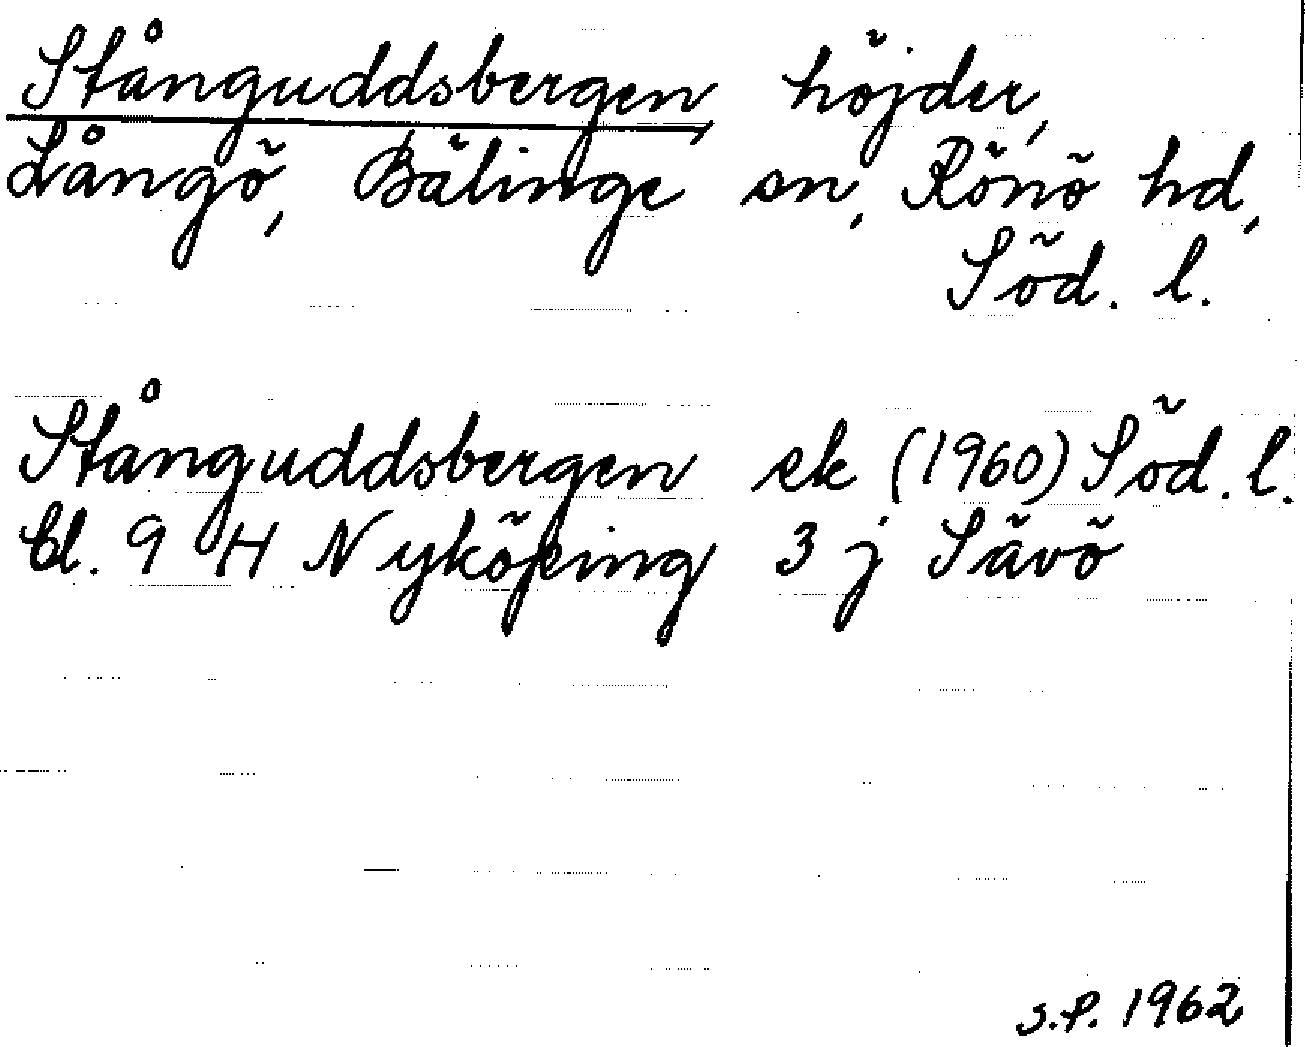 Stånguddsbergen, höjder,
Långö, Bälinge sn, Rönö hd,
Söd. l.
Stånguddsbergen ek (1960) Söd. l.
bl. 9 H Nyköping 3 j Sävö
S.P. 1962